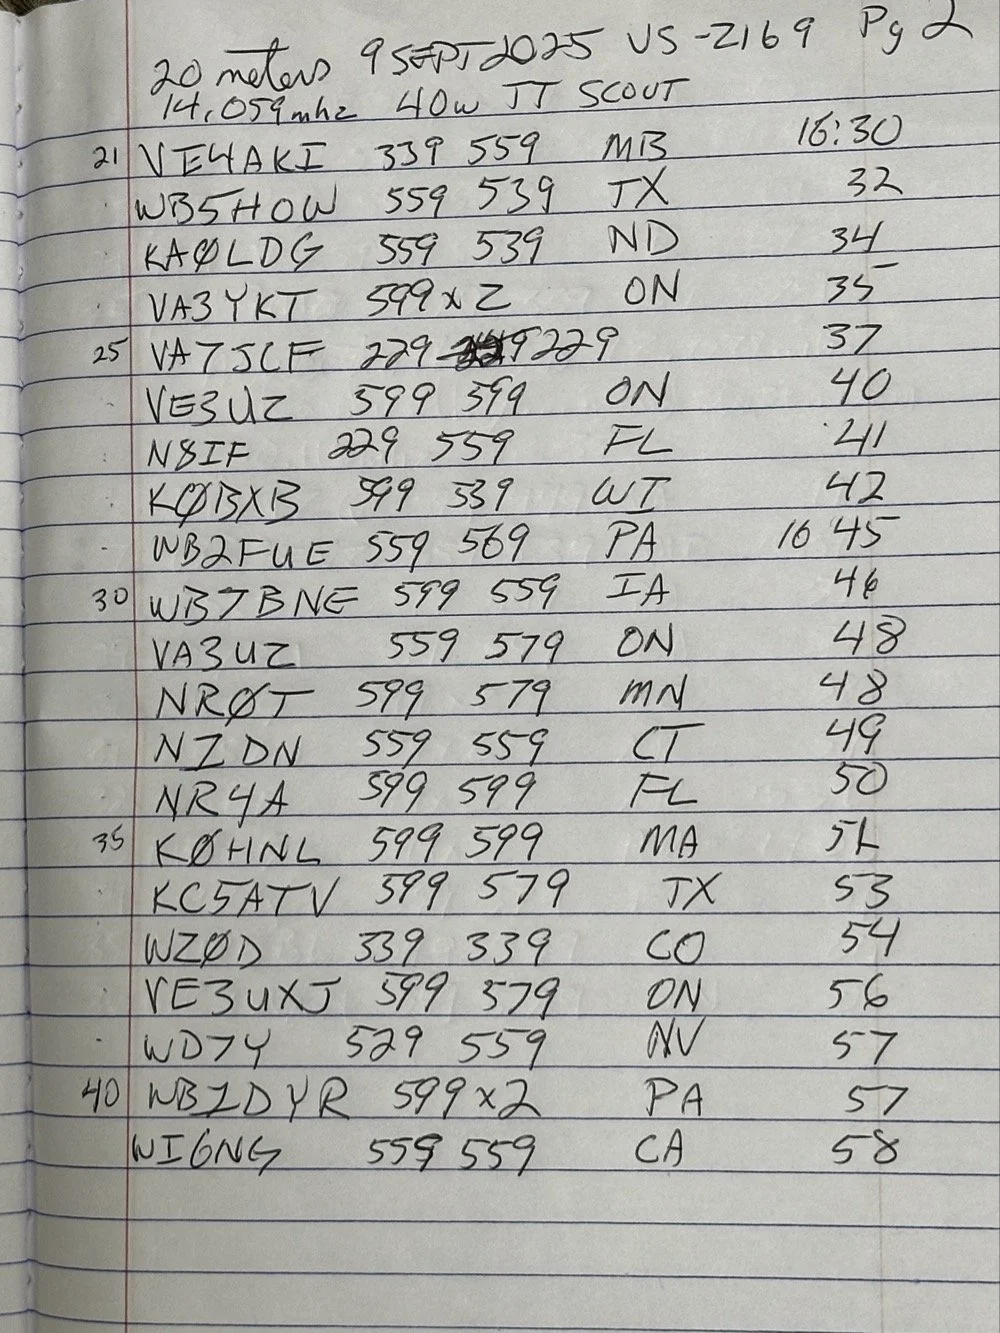 20 meters 9 SEPT 2025 US-2169 Pg 2
14.059 mhz 40w TT SCOUT
21 VE4AKI 339 559 MB 16:30
WB5HOW 559 539 TX 32
KAØLDG 559 539 ND 34
VA3YKT 599 x 2 ON 35
25 VA7JCF 229 229 37
VE3UZ 599 599 ON 40
N8IF 229 559 FL 41
KØBXB 599 339 WI 42
WB2FUE 559 569 PA 16 45
30 WB7BNE 599 559 IA 46
VA3UZ 559 579 ON 48
NRØT 599 579 MN 48
N1DN 559 559 CT 49
NR4A 599 599 FL 50
35 KØHNL 599 599 MA 51
KC5ATV 599 579 TX 53
WZØD 339 339 CO 54
VE3UXJ 599 579 ON 56
WD7Y 529 559 NV 57
40 WB1DYR 599 x 2 PA 57
WI6NG 559 559 CA 58